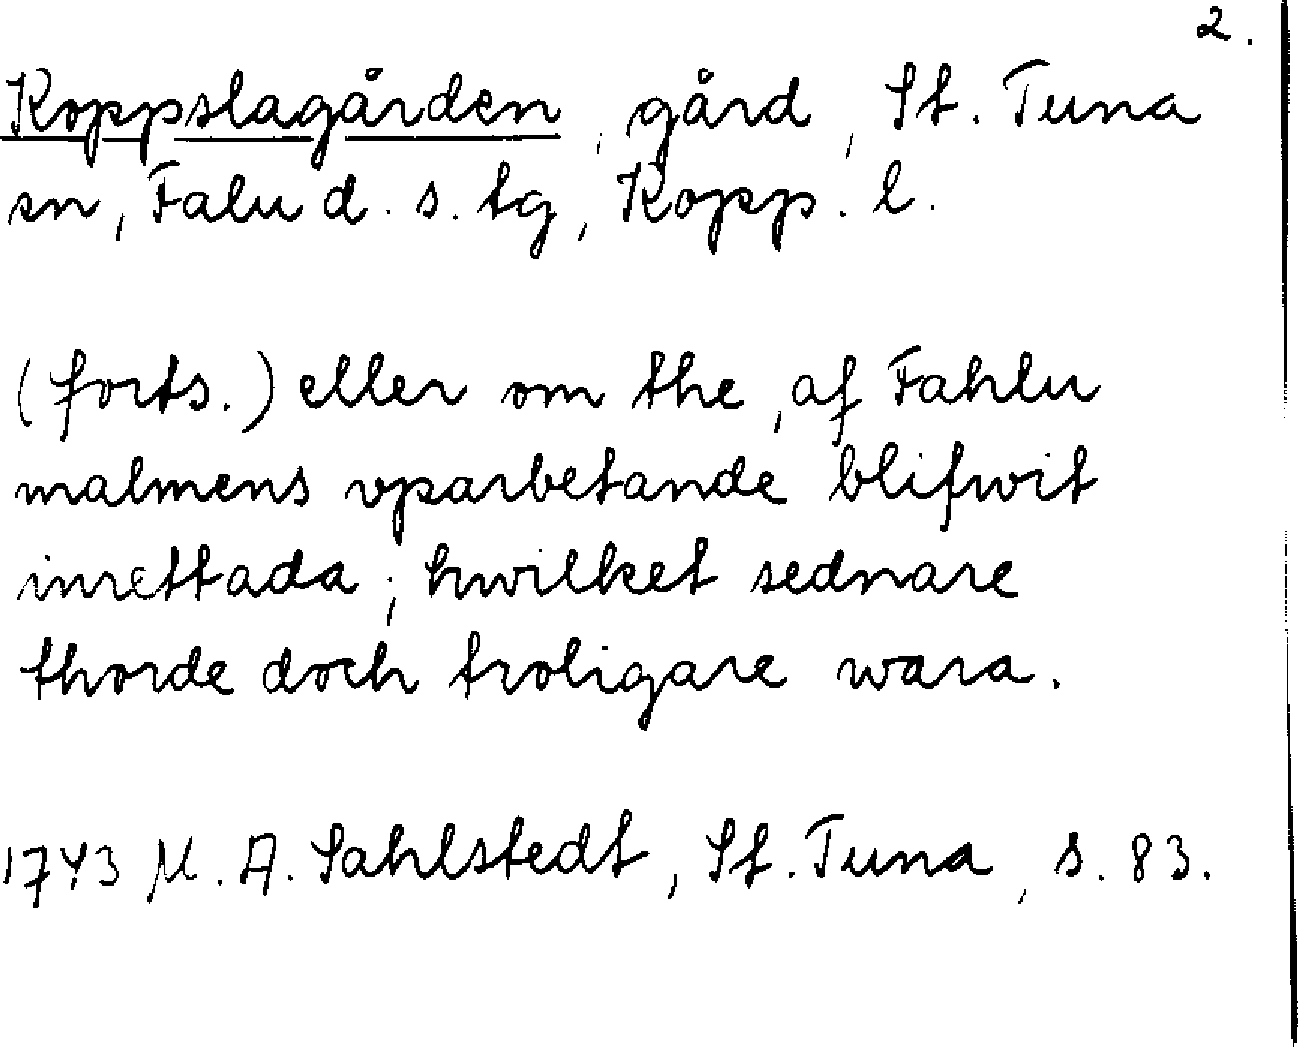 2.
Koppslagården, gård, St. Tuna
sn, Falu d. s. tg, Kopp. l.
(forts.) eller om the, af Fahlu
malmens vparbetande blifwit
inrettada; hwilket sednare
thorde doch troligare wara.
1743 M. A. Sahlstedt, St. Tuna, s. 83.